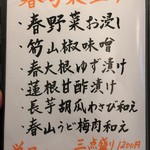 ・春野菜お浸し
・筍山椒味噌
・春大根ゆず漬け
・蓮根甘酢漬け
・長芋胡瓜わさび和え
・春山うど梅肉和え
三点盛り1200円